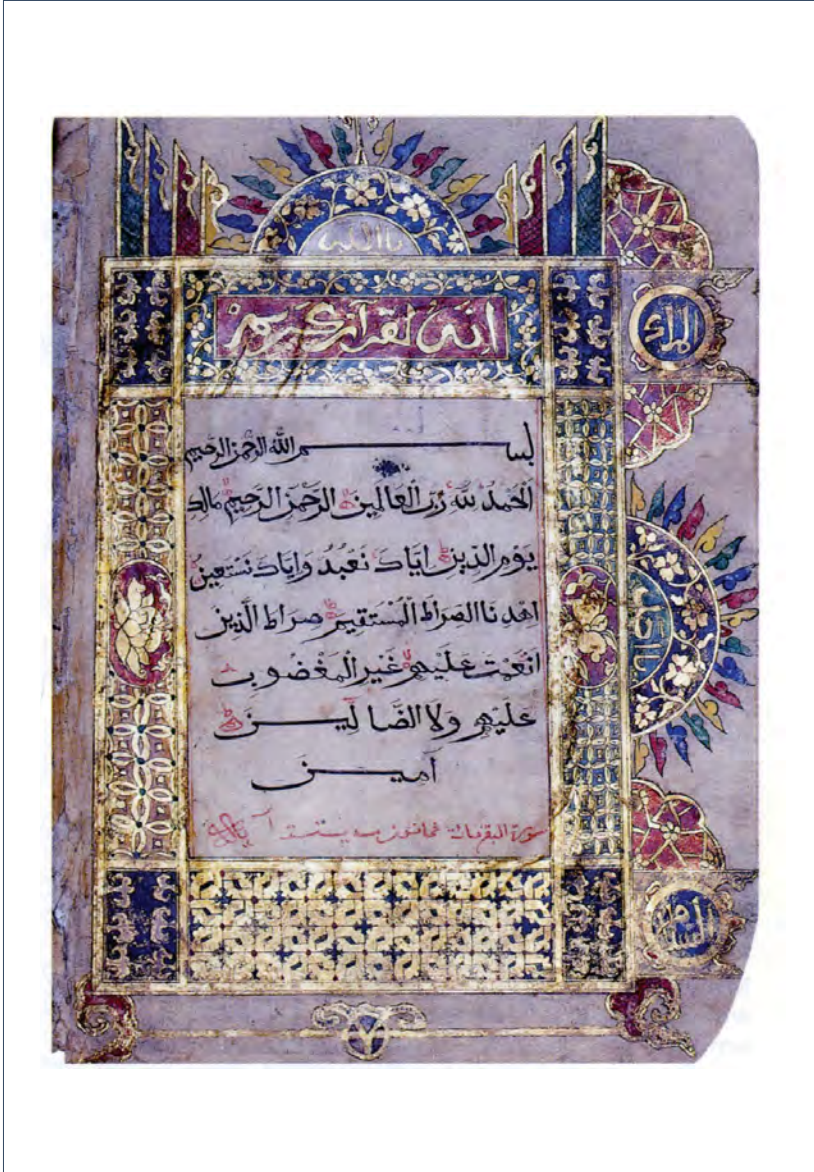 ياالله
إنه لقرآن كريم
الملك
بسم الله الرحمن الرحيم
اَلْحَمْدُ للهِ رَبِّ الْعَالَمِينَ الرَّحْمَنِ الرَّحِيمِ مَالِكِ
يَوْمِ الدِّينِ اِيَّاكَ نَعْبُدُ وَاِيَّاكَ نَسْتَعِينُ
اهْدِنَا الصِّرَاطَ الْمُسْتَقِيمَ صِرَاطَ الَّذِينَ
اَنْعَمْتَ عَلَيْهِمْ غَيْرِ الْمَغْضُوبِ
عَلَيْهِمْ وَلَا الضَّالِّينَ
آمِينَ
سورة البقرة
السلام